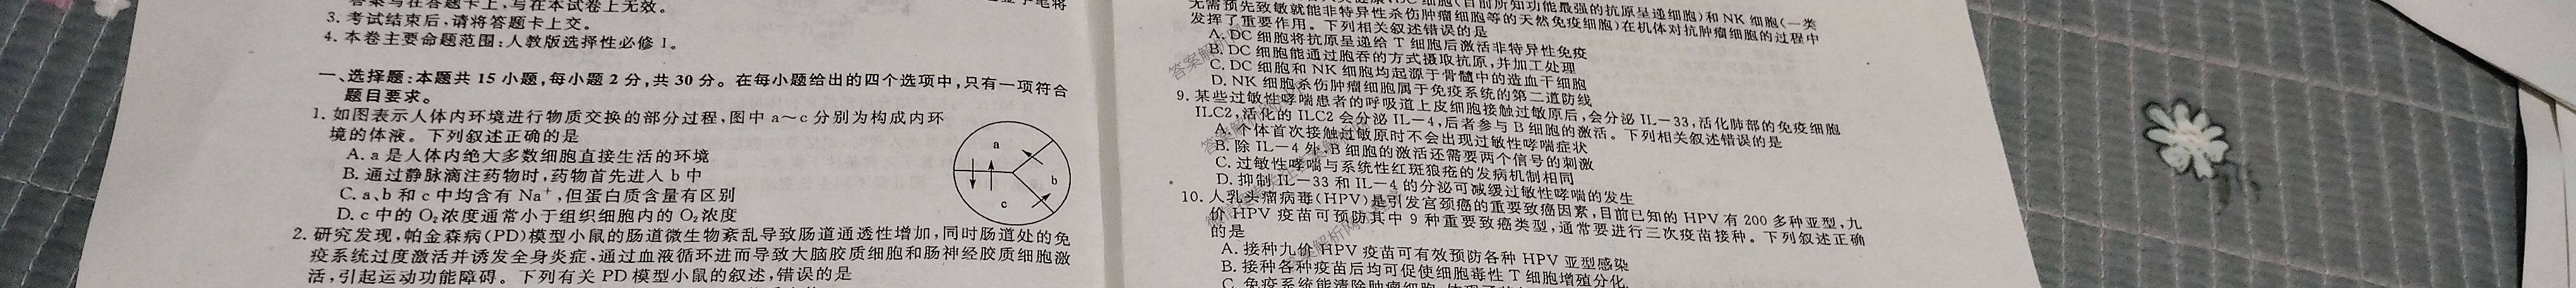 答案写在答题卡上,写在本试卷上无效。
3. 考试结束后,请将答题卡上交。
4. 本卷主要命题范围:人教版选择性必修1。
一、选择题:本题共15小题,每小题2分,共30分。在每小题给出的四个选项中,只有一项符合
题目要求。
1. 如图表示人体内环境进行物质交换的部分过程,图中a~c分别为构成内环
境的体液。下列叙述正确的是
A. a是人体内绝大多数细胞直接生活的环境
B. 通过静脉滴注药物时,药物首先进入b中
C. a、b和c中均含有Na⁺,但蛋白质含量有区别
D. c中的O₂浓度通常小于组织细胞内的O₂浓度
a
b
c
2. 研究发现,帕金森病(PD)模型小鼠的肠道微生物紊乱导致肠道通透性增加,同时肠道处的免
疫系统过度激活并诱发全身炎症,通过血液循环进而导致大脑胶质细胞和肠神经胶质细胞激
活,引起运动功能障碍。下列有关PD模型小鼠的叙述,错误的是
细胞(目前所知功能最强的抗原呈递细胞)和NK细胞(一类
无需预先致敏就能非特异性杀伤肿瘤细胞等的天然免疫细胞)在机体对抗肿瘤细胞的过程中
发挥了重要作用。下列相关叙述错误的是
A. DC细胞将抗原呈递给T细胞后激活非特异性免疫
B. DC细胞能通过胞吞的方式摄取抗原,并加工处理
C. DC细胞和NK细胞均起源于骨髓中的造血干细胞
D. NK细胞杀伤肿瘤细胞属于免疫系统的第二道防线
9. 某些过敏性哮喘患者的呼吸道上皮细胞接触过敏原后,会分泌IL-33,活化肺部的免疫细胞
ILC2,活化的ILC2会分泌IL-4,后者参与B细胞的激活。下列相关叙述错误的是
A. 个体首次接触过敏原时不会出现过敏性哮喘症状
B. 除IL-4外,B细胞的激活还需要两个信号的刺激
C. 过敏性哮喘与系统性红斑狼疮的发病机制相同
D. 抑制IL-33和IL-4的分泌可减缓过敏性哮喘的发生
10. 人乳头瘤病毒(HPV)是引发宫颈癌的重要致癌因素,目前已知的HPV有200多种亚型,九
价HPV疫苗可预防其中9种重要致癌类型,通常要进行三次疫苗接种。下列叙述正确
的是
A. 接种九价HPV疫苗可有效预防各种HPV亚型感染
B. 接种各种疫苗后均可促使细胞毒性T细胞增殖分化
C. 免疫系统能清除肿瘤细胞